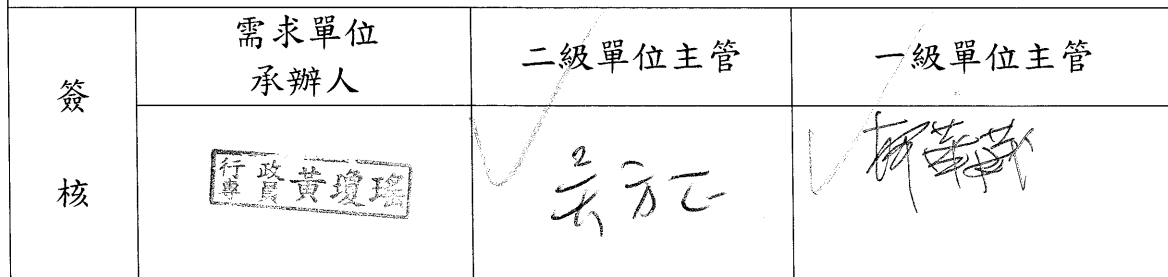 簽核
需求單位
承辦人
二級單位主管
一級單位主管
行政專員 黃瓊瑤
吳方正